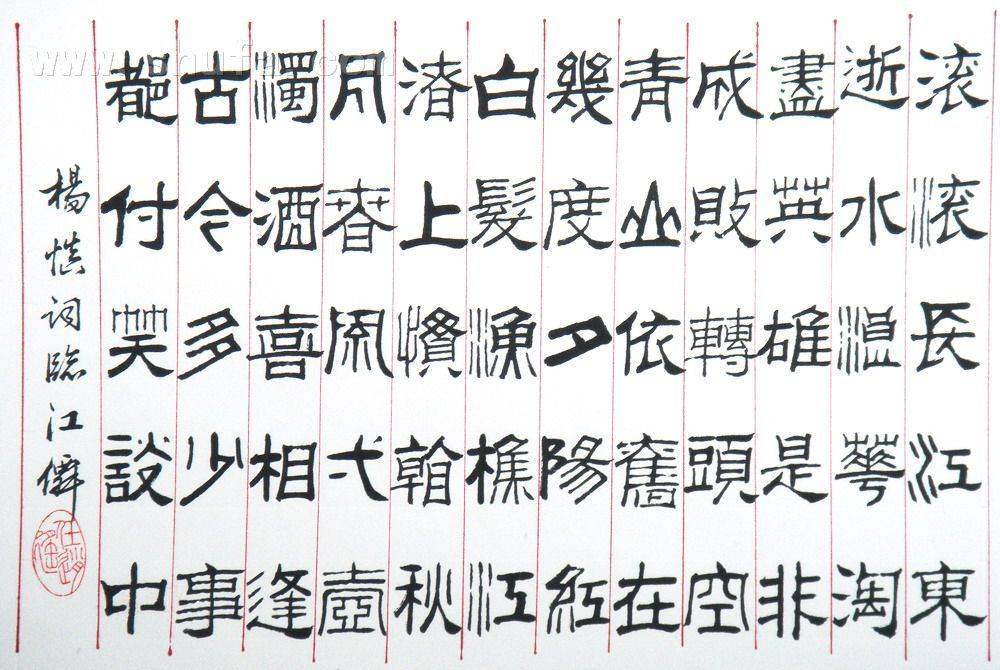 滚滚長江東
逝水浪華淘
盡英雄是非
成敗轉頭空
青山依舊在
幾度夕陽紅
白髮漁樵江
渚上慣看秋
月春風弌壺
濁酒喜相逢
古今多少事
都付笑談中
楊慎词臨江僊